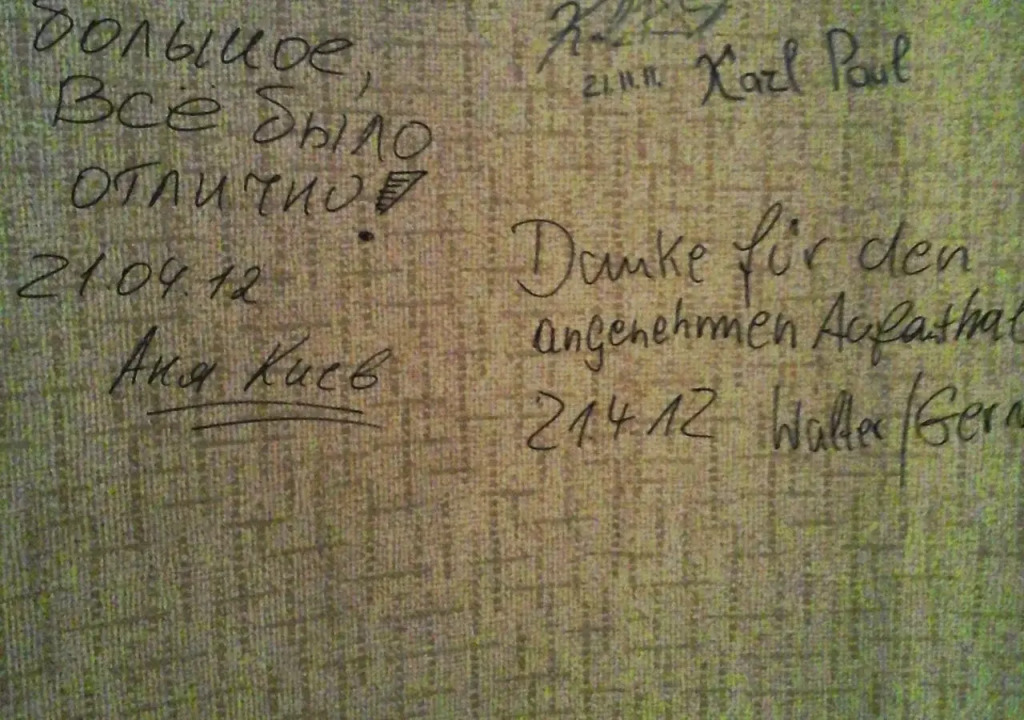 большое,
Всё было
отлично!
21.04.12
Аня Киев
21.11.11. Karl Paul
Danke für den
angenehmen Aufenthal
21.4.12 Walter/Germ